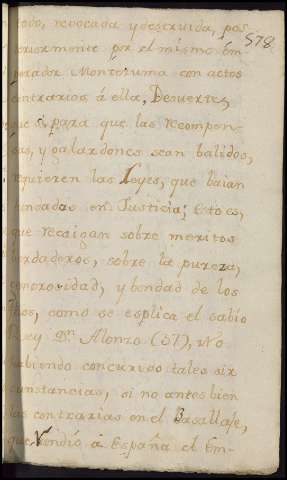 todo, revocada y destruida, pos-
teriormente por el mismo Em-
578
perador Montezuma con actos
contrarios á ella, Desuerte,
que si para que las recompen-
sas, y galardones sean balidos,
requieren las Leyes, que baian
fundados en Justicia; esto es,
que recaigan sobre meritos
berdaderos, sobre la pureza,
generosidad, y bondad de los
fines, como se esplica el sabio
Rey Dn. Alonzo (57), No
habiendo concurrido tales sir
cunstancias, si no antes bien
las contrarias en el Basallaje,
que Vendió á España el Em-